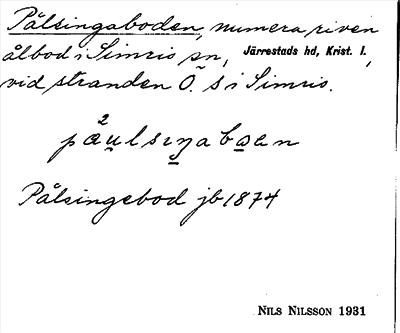 Pålsingaboden, numera riven
ålbod i Simris sn, Järrestads hd, Krist. l.,
vid stranden Ö. s i Simris.
Pålsingebod jb 1874
NILS NILSSON 1931